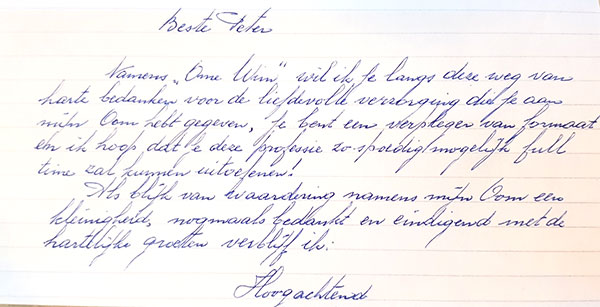 Beste Peter
Namens "Ome Wim" wil ik je langs deze weg van
harte bedanken voor de liefdevolle verzorging die je aan
mijn Oom hebt gegeven, je bent een verpleger van formaat
en ik hoop dat je deze professie zo spoedig mogelijk full
time zal kunnen uitoefenen!
Als blijk van waardering namens mijn Oom een
kleinigheid, nogmaals bedankt en eindigend met de
hartelijke groeten verblijf ik:
Hoogachtend